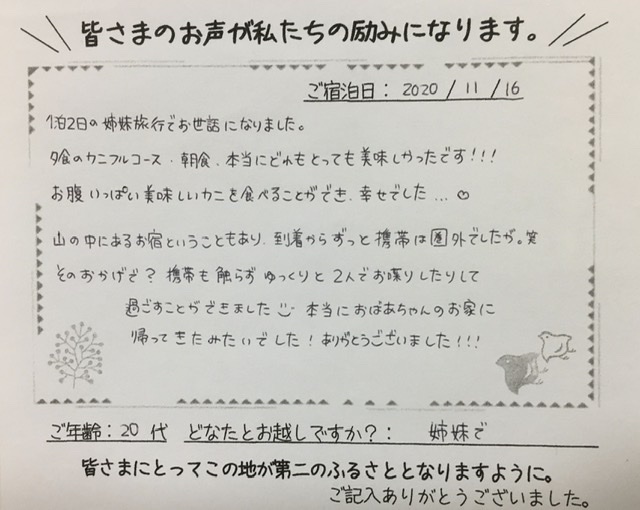 皆さまのお声が私たちの励みになります。
ご宿泊日: 2020 / 11 / 16
1泊2日の姉妹旅行でお世話になりました。
夕食のカニフルコース・朝食、本当にどれもとっても美味しかったです!!!
お腹いっぱい美味しいカニを食べることができ、幸せでした...♡
山の中にあるお宿ということもあり、到着からずっと携帯は圏外でしたが。笑
そのおかげで?携帯も触らずゆっくりと2人でお喋りしたりして
過ごすことができました 本当におばあちゃんのお家に
帰ってきたみたいでした!ありがとうございました!!!
ご年齢: 20 代 どなたとお越しですか?: 姉妹で
皆さまにとってこの地が第二のふるさととなりますように。
ご記入ありがとうございました。